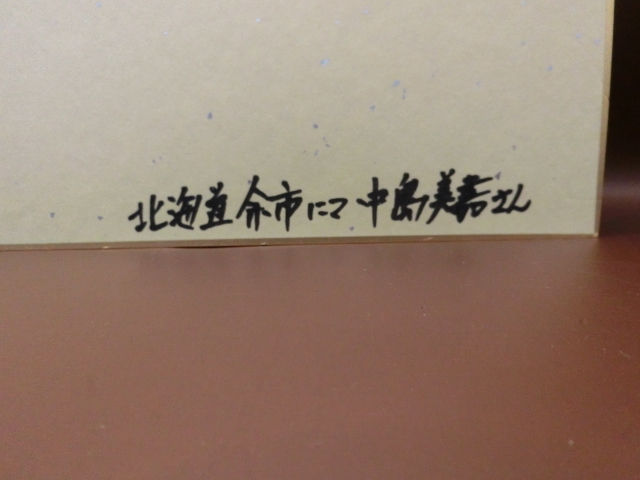 北海道余市にて 中島美嘉さん